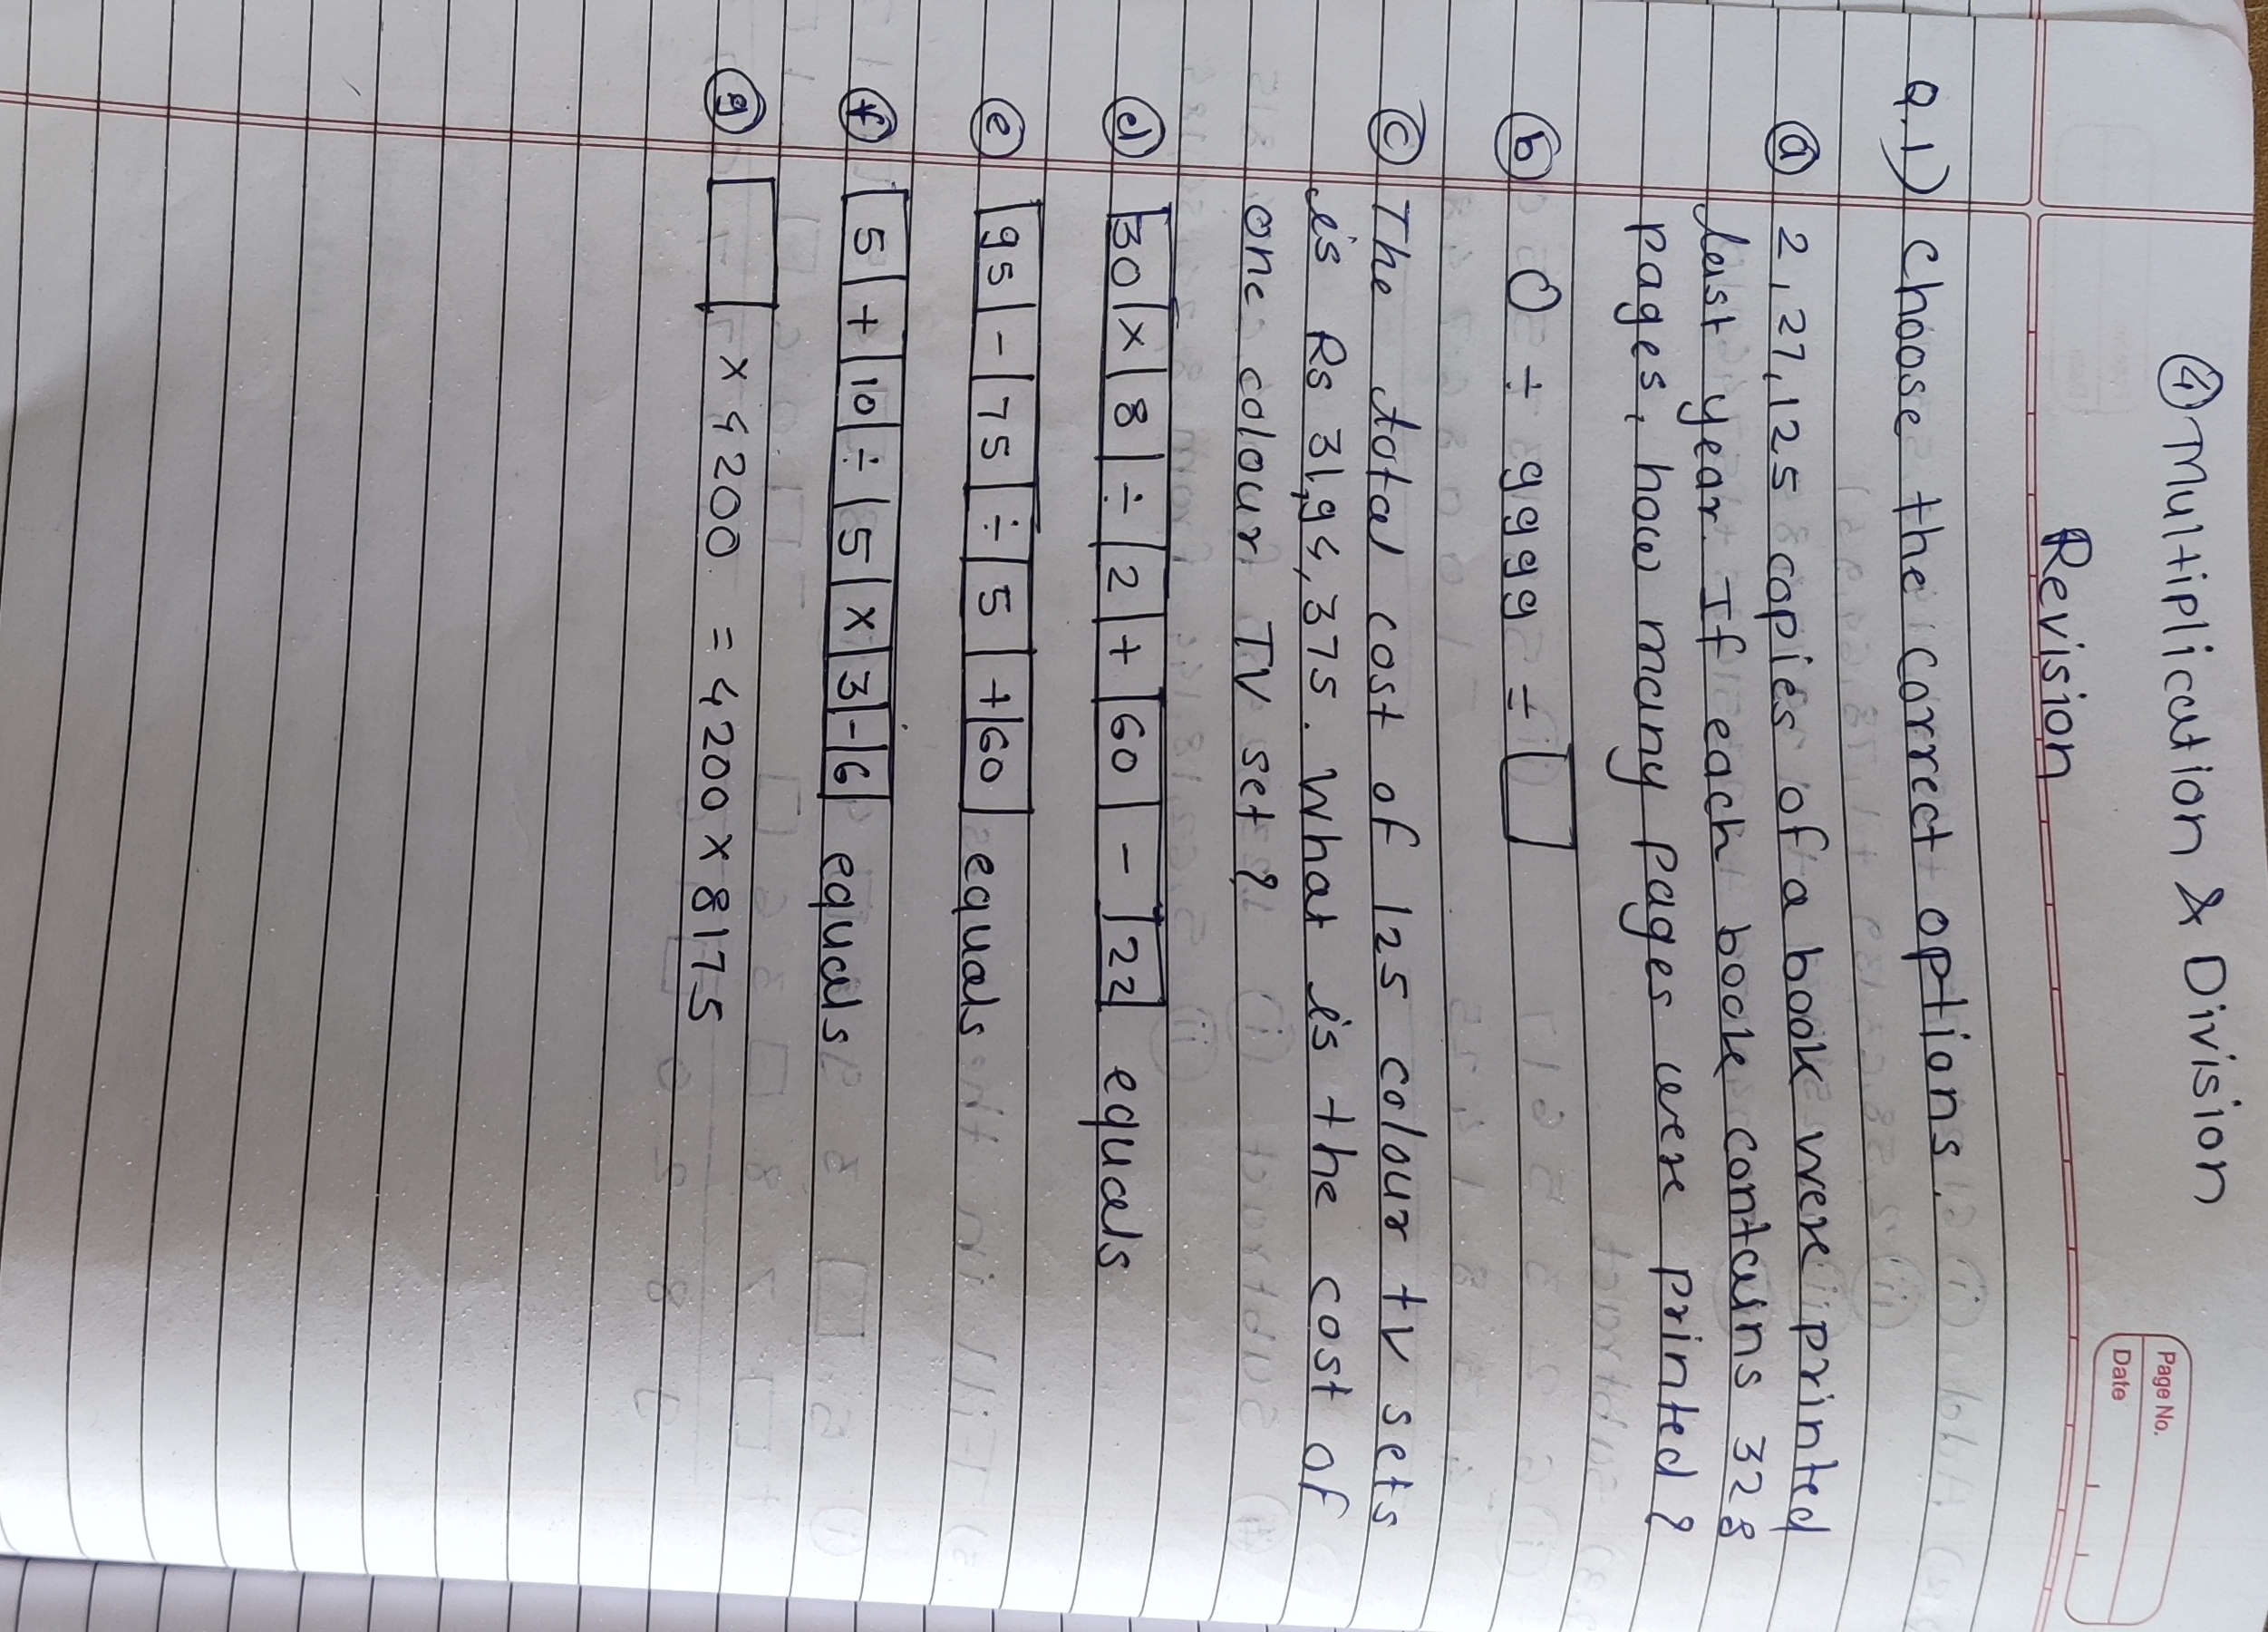 Page No.
Date
④ Multiplication & Division
Revision
Q.1) Choose the correct options.
ⓐ 2,27,125 copies of a book were printed
last year. If each book contains 328
pages, how many pages were printed?
ⓑ 0 ÷ 9999 = □
ⓒ The total cost of 125 colour tv sets
is Rs 31,94,375. What is the cost of
one colour TV set?
ⓓ |30|×|8|÷|2|+|60|-|22| equals
ⓔ |95|-|75|÷|5|+|60| equals
ⓕ |5|+|10|÷|5|×|3|-|6| equals
ⓖ □ × 4200 = 4200 × 8175